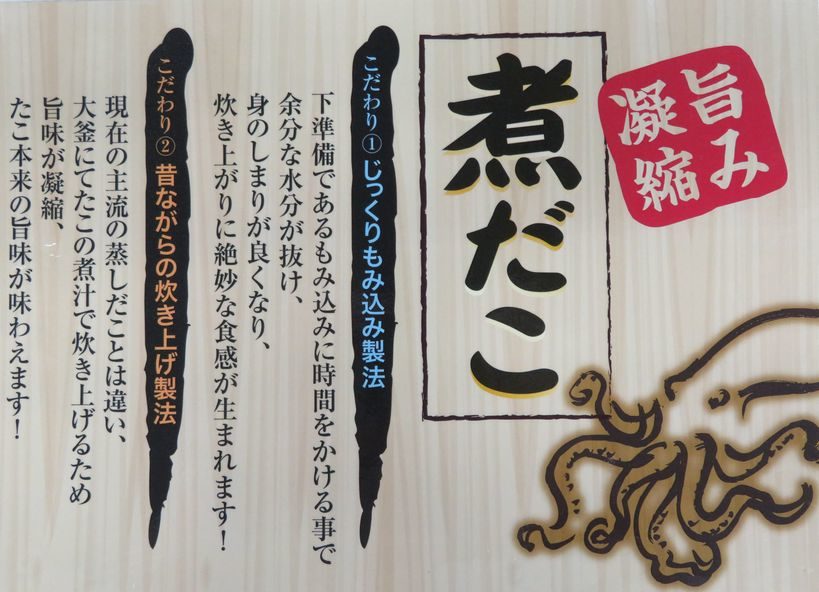 旨み
凝縮
煮だこ
こだわり①じっくりもみ込み製法
下準備であるもみ込みに時間をかける事で
余分な水分が抜け、
身のしまりが良くなり、
炊き上がりに絶妙な食感が生まれます!
こだわり②昔ながらの炊き上げ製法
現在の主流の蒸しだことは違い、
大釜にてたこの煮汁で炊き上げるため
旨味が凝縮、
たこ本来の旨味が味わえます!